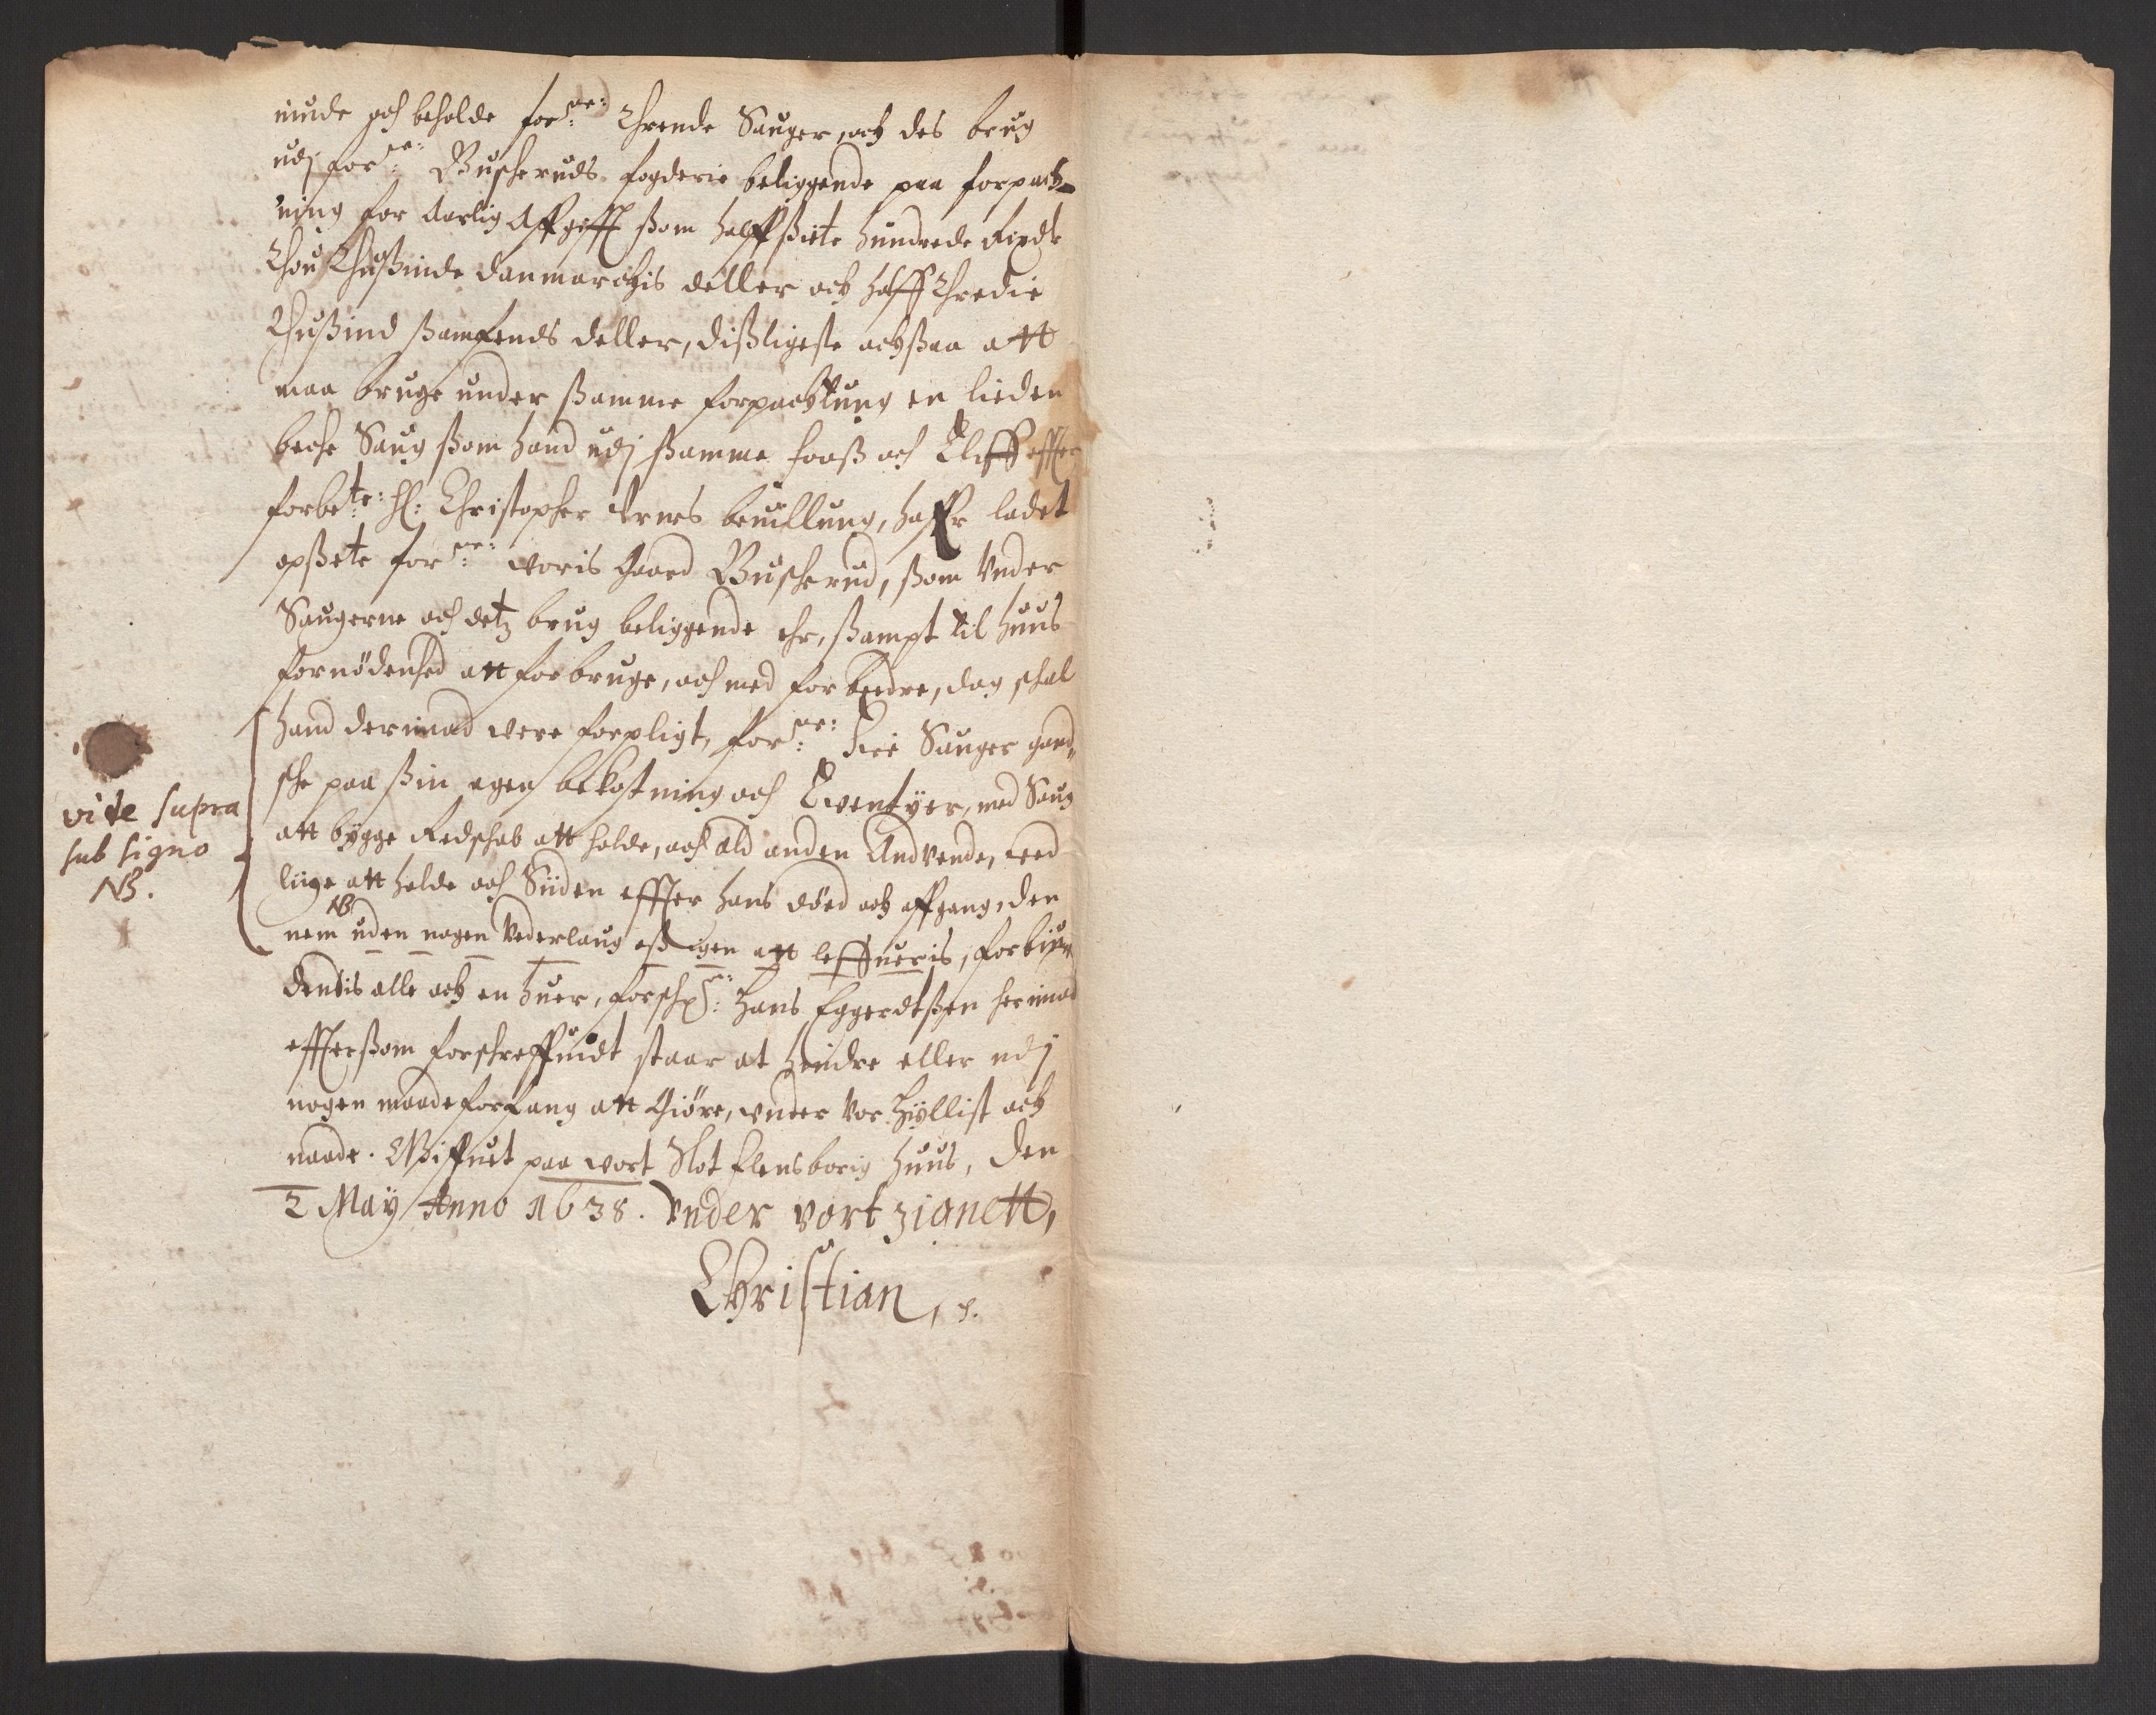 niude och beholde forne: Thrende Sauger, och des brug
udj forne: Buscheruds fogderie beliggende paa forpacht-
ning for Aarlig Affgifft ßom halffßiete hundrede Rixdlr
Thou Thußinde danmarchis deller och halff Thredie
Thußind ßamfends deller, dißligeste ochßaa att
maa bruge under ßamme forpachtung en lieden
beche Saug ßom hand udj ßamme foß och Eliff effter
forbete: H: Christopher Urnes beuillung, haffr ladet
opßete forne: woris Gaard Buscherud, ßom Under
Saugerne och detz brug beliggende ehr, ßampt til huus
fornödenhed att forbruge, och med forbedre, dog schal
hand derimod were forpligt, forne: Trei Sauger gand-
sche paa ßin egen bekostning och Ewentyer, med Saug
att bygge Redschab att holde, och ald anden Andvende, ved
liige att holde och Siiden effter hans döed och affgang, den
NB
nem uden nogen Vederlaug oß igen att leffueris, forbiu-
dendis alle och en huer, forschne: Hans Eggerdtßen herimod
effterßom forschreffuidt staar at hindre eller udj
nogen maade forfang att Giöre, under vor Hyllist och
naade. Schriffuet paa wort Slot Flensborig huus, den
2 May Anno 1638. Vnder vort zignett,
Christian,
vide supra
sub signo
NB.